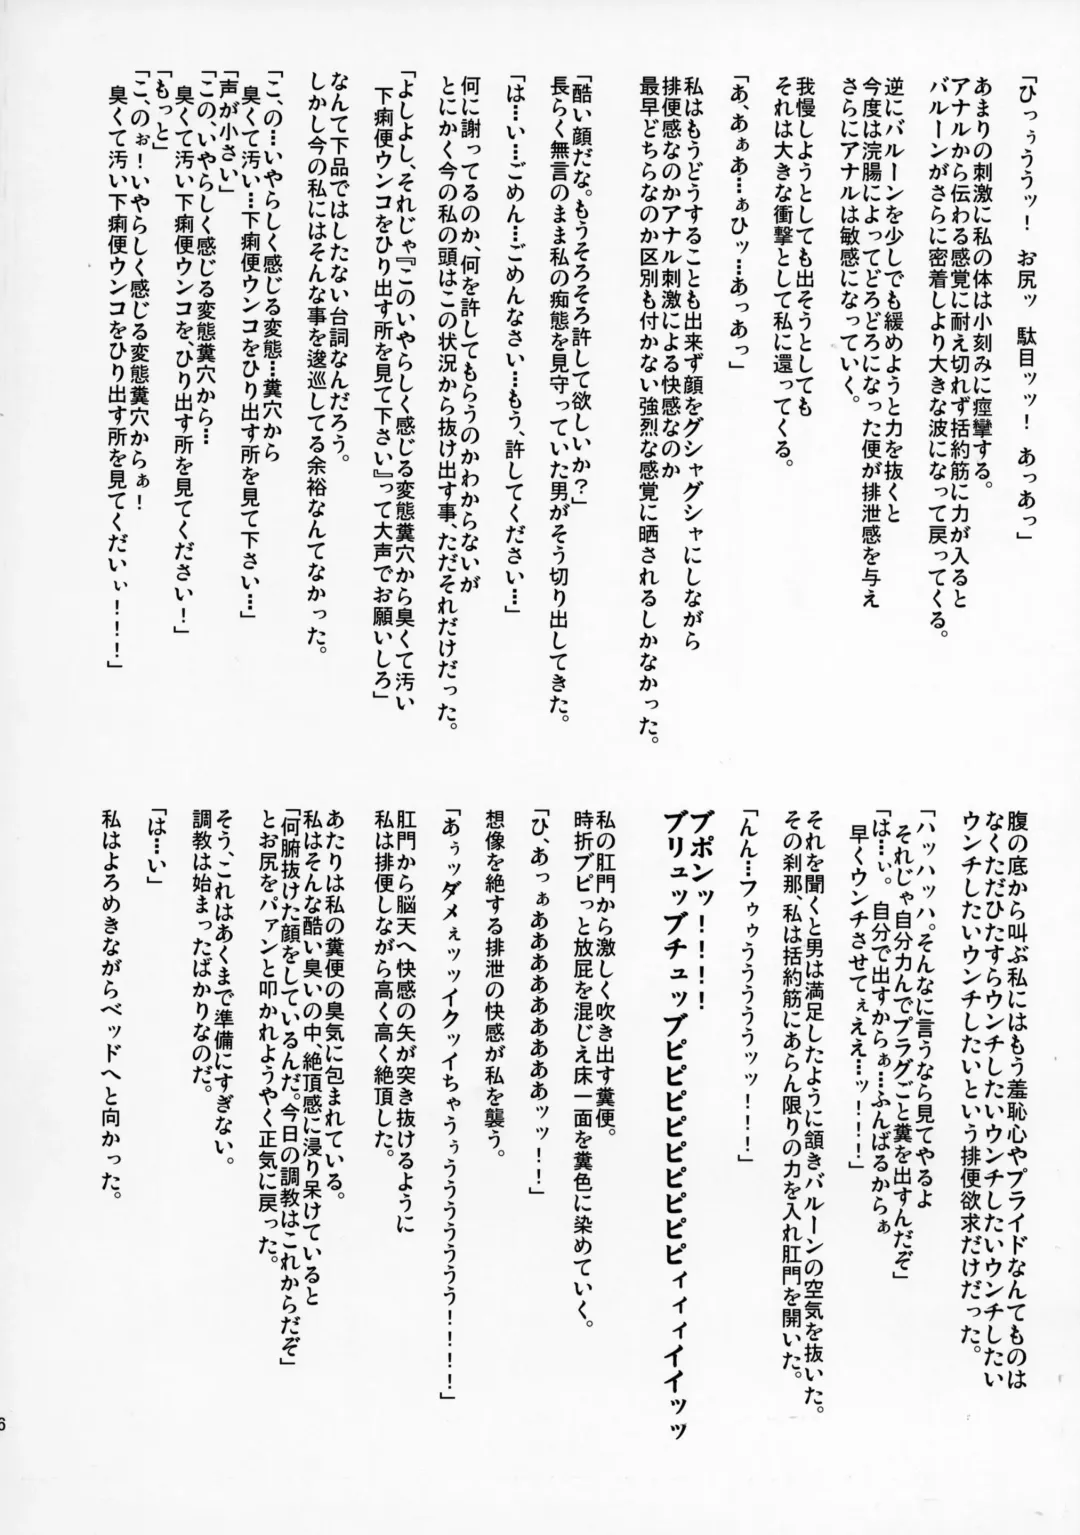 「ひっぅううッ！　お尻ッ　駄目ッッ！　あっあっ」
あまりの刺激に私の体は小刻みに痙攣する。
アナルから伝わる感覚に耐え切れず括約筋に力が入ると
バルーンがさらに密着しより大きな波になって戻ってくる。
逆にバルーンを少しでも緩めようと力を抜くと
今度は浣腸によってどろどろになった便が排泄感を与え
さらにアナルは敏感になっていく。
我慢しようとしても出そうとしても
それは大きな衝撃として私に還ってくる。
「あ、あぁあ…ぁひッ…あっあっ」
私はもうどうすることも出来ず顔をグシャグシャにしながら
排便感なのかアナル刺激による快感なのか
最早どちらなのか区別も付かない強烈な感覚に晒されるしかなかった。
「酷い顔だな。もうそろそろ許して欲しいか？」
長らく無言のまま私の痴態を見守っていた男がそう切り出してきた。
「は…い…ごめん…ごめんなさい…もう、許してください…」
何に謝ってるのか、何を許してもらうのかわからないが
とにかく今の私の頭はこの状況から抜け出す事、ただそれだけだった。
「よしよし、それじゃ『このいやらしく感じる変態糞穴から臭くて汚い
下痢便ウンコをひり出す所を見て下さい』って大声でお願いしろ」
なんて下品ではしたない台詞なんだろう。
しかし今の私にはそんな事を逡巡してる余裕なんてなかった。
「こ、の…いやらしく感じる変態…糞穴から
臭くて汚い…下痢便ウンコをひり出す所を見て下さい…」
「声が小さい」
「この、いやらしく感じる変態糞穴から…
臭くて汚い下痢便ウンコを、ひり出す所を見てください！」
「もっと」
「こ、のぉ！いやらしく感じる変態糞穴からぁ！
臭くて汚い下痢便ウンコをひり出す所を見てくだいぃ！！！」
腹の底から叫ぶ私にはもう羞恥心やプライドなんてものは
なくただひたすらウンチしたいウンチしたいウンチしたい
ウンチしたいウンチしたいという排便欲求だけだった。
「ハッハッハ。そんなに言うなら見てやるよ
それじゃ自分力んでプラグごと糞を出すんだぞ」
「は…ぃ。　自分で出すからぁ…ふんばるからぁ
早くウンチさせてぇええ…ッ！！！」
それを聞くと男は満足したように頷きバルーンの空気を抜いた。
その刹那、私は括約筋にあらん限りの力を入れ肛門を開いた。
「んん…フゥゥううううッッ！！！」
ブポンッ！！！！
ブリュッブチュッブピピピピピピピピィィィイイッッ
私の肛門から激しく吹き出す糞便。
時折ブピっと放屁を混じえ床一面を糞色に染めていく。
「ひ、あっぁああああああああッッ！！」
想像を絶する排泄の快感が私を襲う。
「あぅッダメぇッッイクッイちゃうぅうううううう！！！！」
肛門から脳天へ快感の矢が突き抜けるように
私は排便しながら高く高く絶頂した。
あたりは私の糞便の臭気に包まれている。
私はそんな酷い臭いの中、絶頂感に浸り呆けていると
「何腑抜けた顔をしているんだ。今日の調教はこれからだぞ」
とお尻をパァンと叩かれようやく正気に戻った。
そう、これはあくまで準備にすぎない。
調教は始まったばかりなのだ。
「は…い」
私はよろめきながらベッドへと向かった。
6